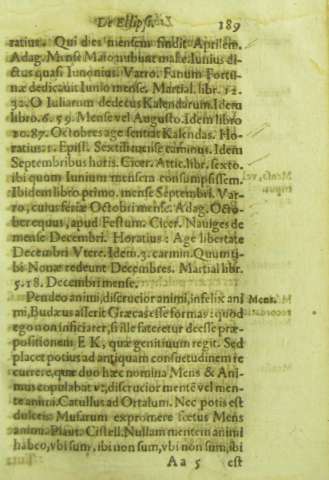 De Ellipsi. 189
ratius. Qui dies mensem findit Aprilem.
Adag. Mense Maio nubunt malæ. Iunius di-
ctus quasi Iunonius. Varro. Fanum Fortu-
næ dedicauit Iunio mense. Martial. libr. 12
32. O Iuliarum dedecus Kalendarum. Idem
libro. 6. 59. Mense vel Augusto. Idem libro
10. 87. Octobres age sentiat Kalendas. Ho-
ratius: 1. Epist. Sextilem
Septembribus horis. Cicer. Attic. libr. sexto.
ibi quum Iunium mensem consumpsissem.
Ibidem libro primo. mense Septembri. Var-
ro, cuius feriæ Octobri mense. Adag. Octo-
ber equus, apud Festum. Cicer. Nauiges de
mense Decembri. Horatius: Age libertate
Decembri Vtere. Idem. 3. carmin. Quum ti-
bi Nonæ redeunt Decembres. Martial libr.
5. 18. Decembri mense.
Pendeo animi, discrucior animi, infelix ani Mens.
mi, Budæus asserit Græcas esse formas: quod
ego non inficiarer, si ille fateretur deesse præ-
positionem E K, quæ genitiuum regit. Sed
placet potius ad antiquam consuetudinem re
currere, quæ duo hæc nomina Mens & Ani-
mus copulabat vt, discrucior mentē vel men-
te animi. Catullus ad Ortalum. Nec potis est
dulceis Musarum expromere fœtus Mens
animi. Plaut. Cistell. Nullam mentem animi
habeo, vbi sum, ibi non sum, vbi non sum, ibi
A a 5 est